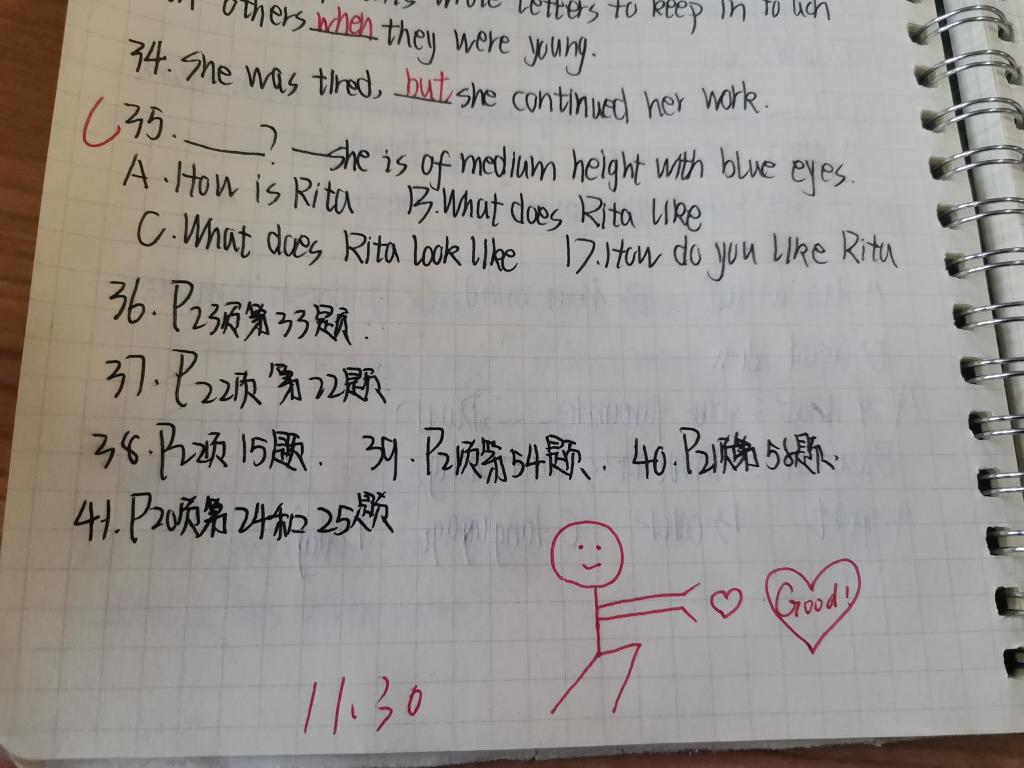 others when they were young.
34. she was tired, but she continued her work.
C 35. ____? —she is of medium height with blue eyes.
A. How is Rita B. What does Rita like
C. What does Rita look like D. How do you like Rita
36. P23页第33题.
37. P22页第22题
38. P22页15题. 39. P21页第54题. 40. P21页第56题.
41. P20页第24和25题
Good!
11.30